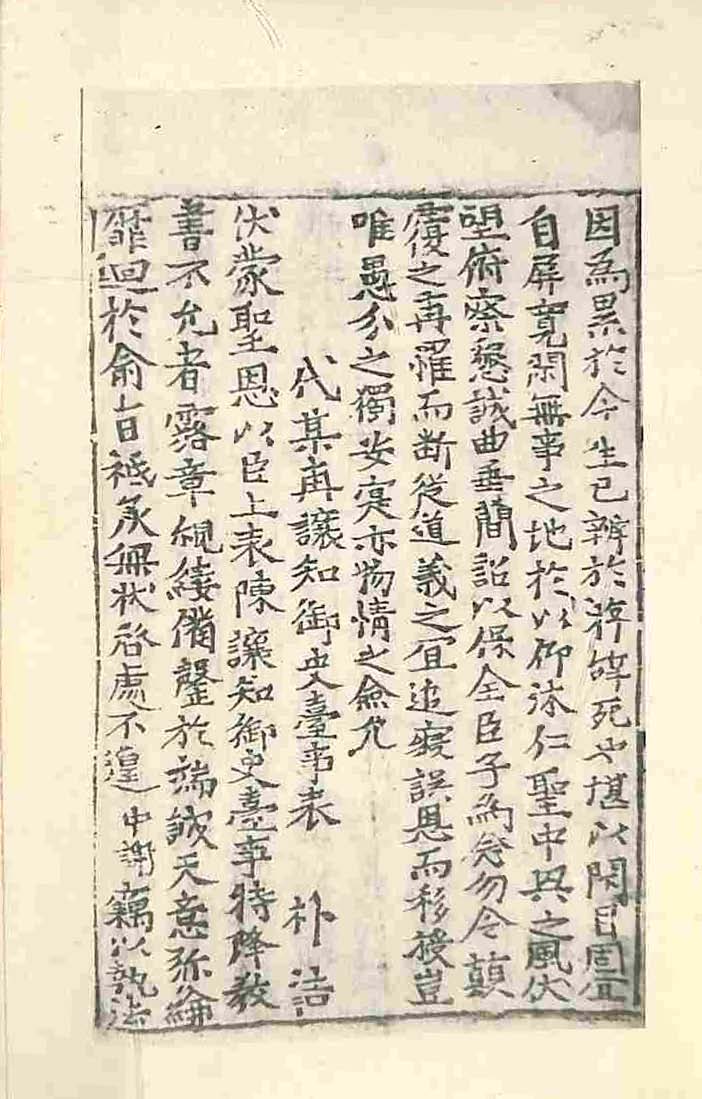 因為累於今生已辨於碎死也堪以閉目固宜
自屏寛閑無事之地於以仰沐仁聖中興之風伏
望俯察懇誠曲垂簡詔以保全臣子為念勿令顛
覆之再罹而断從道義之宜追寢誤恩而移授豈
唯愚分之獨安寔亦物情之僉允
代某再讓知御史臺事表 朴浩
伏蒙聖恩以臣上表陳讓知御史臺事特降教
書不允者露章覼縷備罄於端誠天意弥綸
靡迴於俞旨祗承無状啓處不遑中謝竊以執法